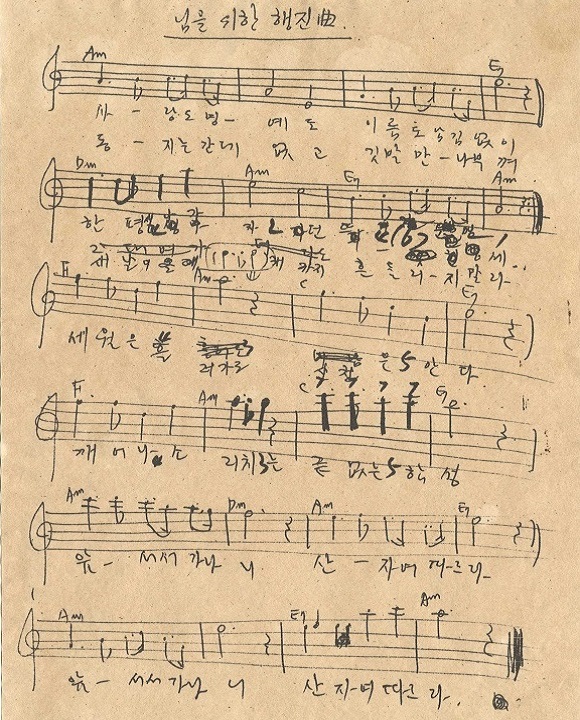 님을 위한 행진曲.
Am E7
사 - 랑도 명 - 예도 이름도 남김 없이
동 - 지는 간데 없고 깃발만 - 나부껴
Dm Am E7 Am
한 평생
세 날이 올 때 까지 흔들리 - 지 말라 -
F Am C E7
세월은 흘러가도 산천은 안다
F. Am C E7
깨어나소 리치는 끝없는 함성
Am Dm Am E7
앞 - 서서 가나니 산 - 자여 따르라 -
Am E7 Am
앞 - 서서 가나니 산 자 - 여 따르라.